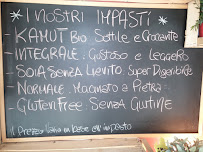 * I NOSTRI IMPASTI *
- KAMUT Bio Sottile e Croccante
- INTEGRALE: Gustoso e Leggero
- SOIA Senza Lievito: Super Digeribile
- NORMALE: Macinato a Pietra
- Gluten Free: Senza Glutine
I Prezzi Variano in base all'impasto